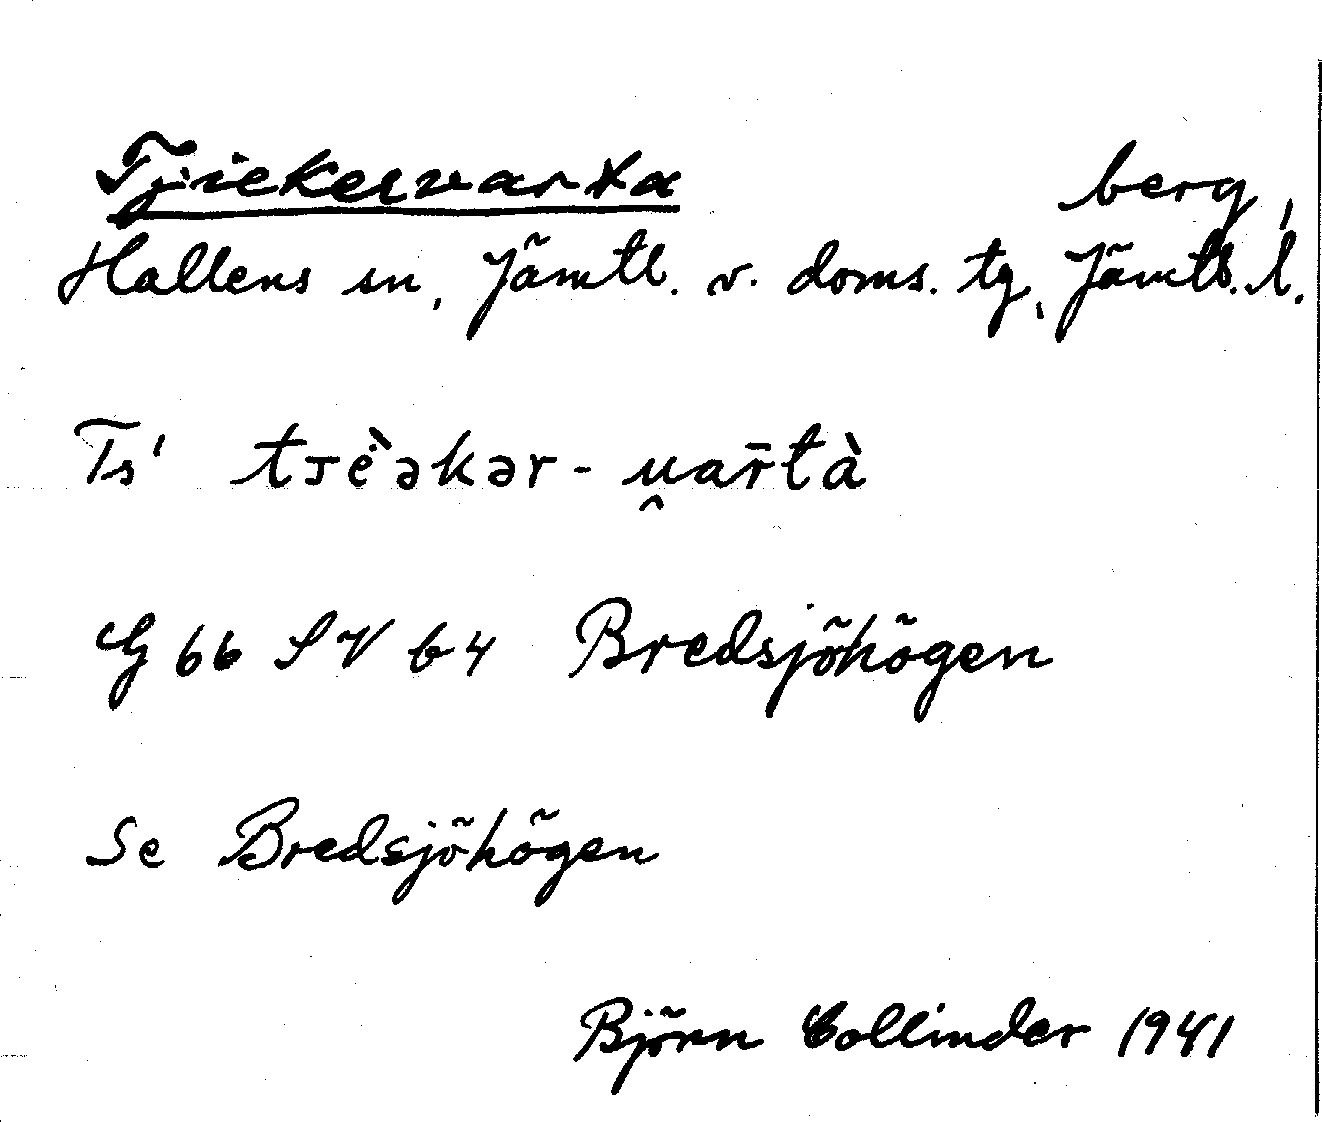 Tjiekervarta berg,
Hallens sn, Jämtl. v. doms. tg, Jämtl. l.
Ts' tᴊèəkər-u̯ar̄tà
G 66 SV b 4 Bredsjöhögen
Se Bredsjöhögen
Björn Collinder 1941